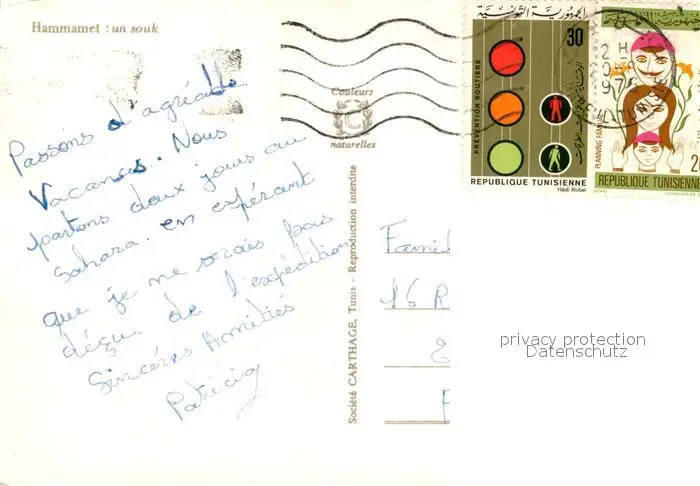 Hammamet : un souk
Passons d'agréable
Vacances. Nous
partons deux jours au
Sahara. en espérant
que je ne serais pas
déçu de l'expédition
Sincères Amitiés
Patricia
Couleurs
C
naturelles
Société CARTHAGE, Tunis - Reproduction interdite
الجمهورية التونسية
30
PRÉVENTION ROUTIÈRE
REPUBLIQUE TUNISIENNE
Hédi Robel
PLANNING FAMILIAL
REPUBLIQUE TUNISIENNE
Famil
16 R
privacy protection
Datenschutz